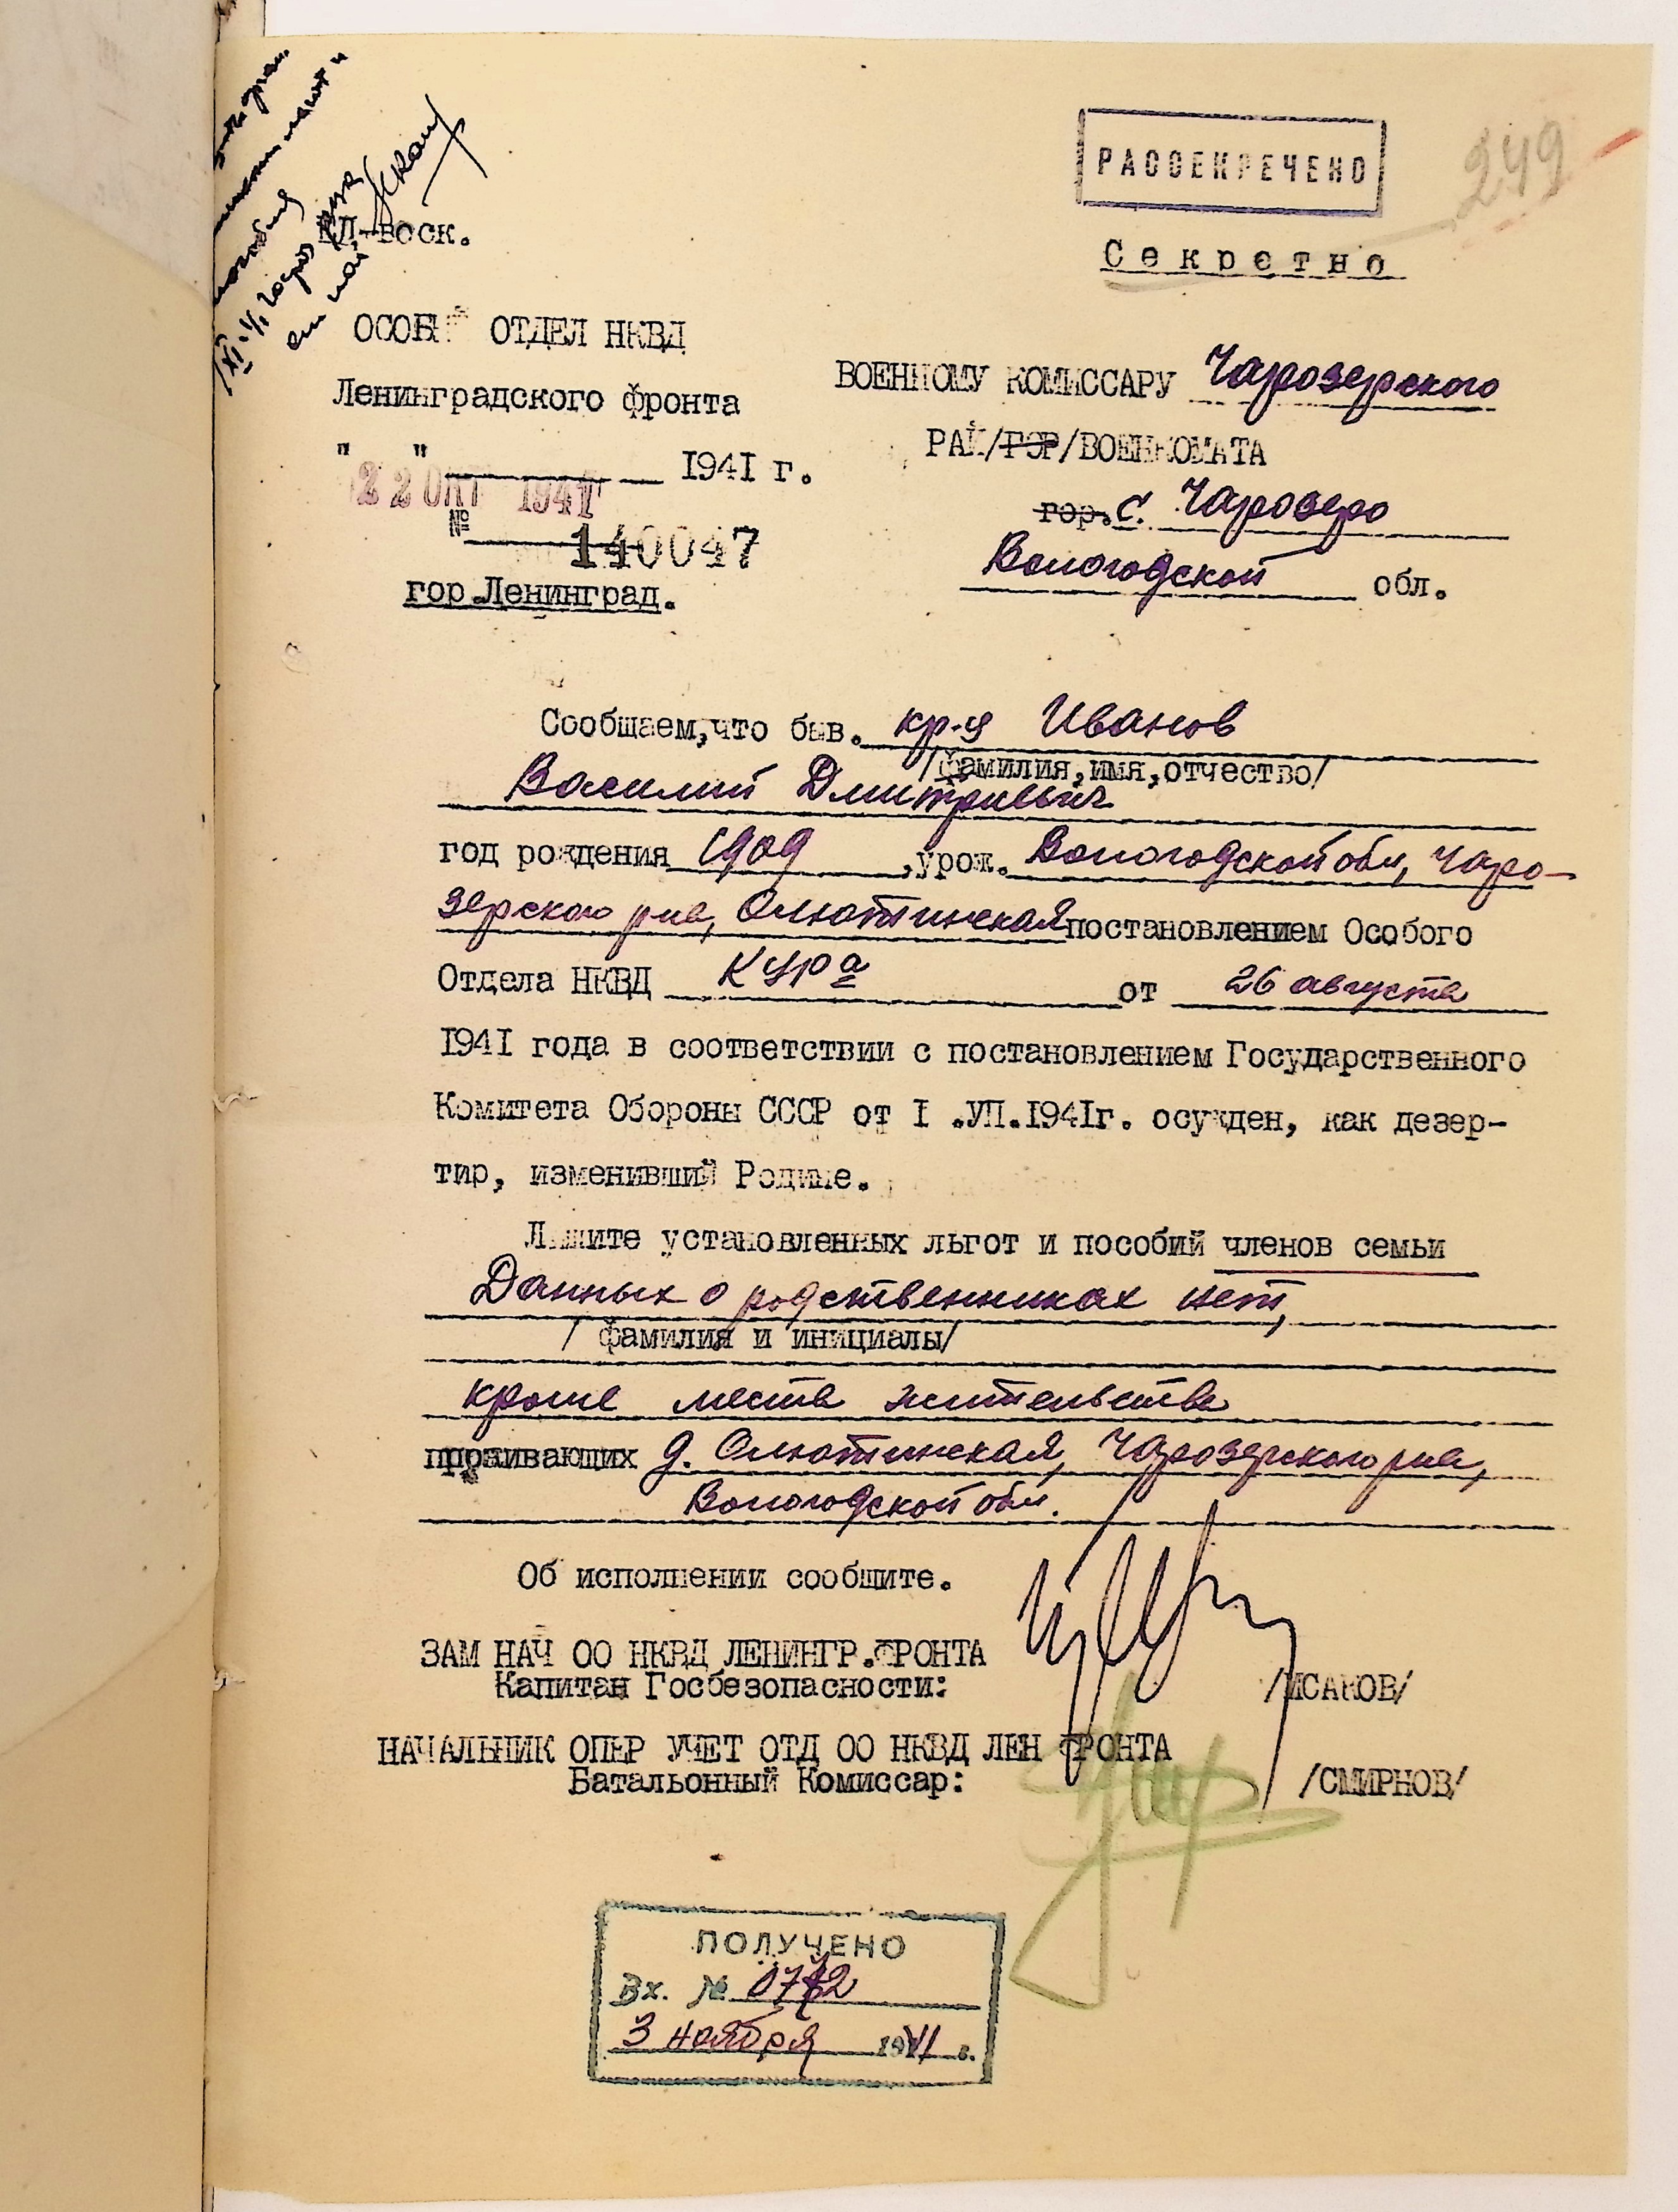 РАССЕКРЕЧЕНО
249
Секретно
КЛ-воск.
ОСОБ ОТДЕЛ НКВД
Ленинградского фронта
" " 1941 г.
22 ОКТ 1941
№ 140047
гор.Ленинград.
ВОЕННОМУ КОМИССАРУ Чарозерского
РАЙ/ГОР/ВОЕНКОМАТА
гор. с. Чарозеро
Вологодской обл.
Сообщаем,что быв. кр-ц Иванов
/фамилия,имя,отчество/
Василий Дмитриевич
год рождения 1909 ,урож. Вологодской обл, Чаро-
зерского р-на, Олютинская постановлением Особого
Отдела НКВД КУРа от 26 августа
1941 года в соответствии с постановлением Государственного
Комитета Обороны СССР от I .УП.1941г. осужден, как дезер-
тир, изменивший Родине.
Лишите установленных льгот и пособий членов семьи
Данных о родственниках нет,
/ фамилия и инициалы/
кроме места жительства
проживающих д. Олютинская, Чарозерского р-на,
Вологодской обл.
Об исполнении сообщите.
ЗАМ НАЧ ОО НКВД ЛЕНИНГР.ФРОНТА
Капитан Госбезопасности: /ИСАКОВ/
НАЧАЛЬНИК ОПЕР УЧЕТ ОТД ОО НКВД ЛЕН ФРОНТА
Батальонный Комиссар: /СМИРНОВ/
ПОЛУЧЕНО
Вх. №
3 ноября 1941 г.